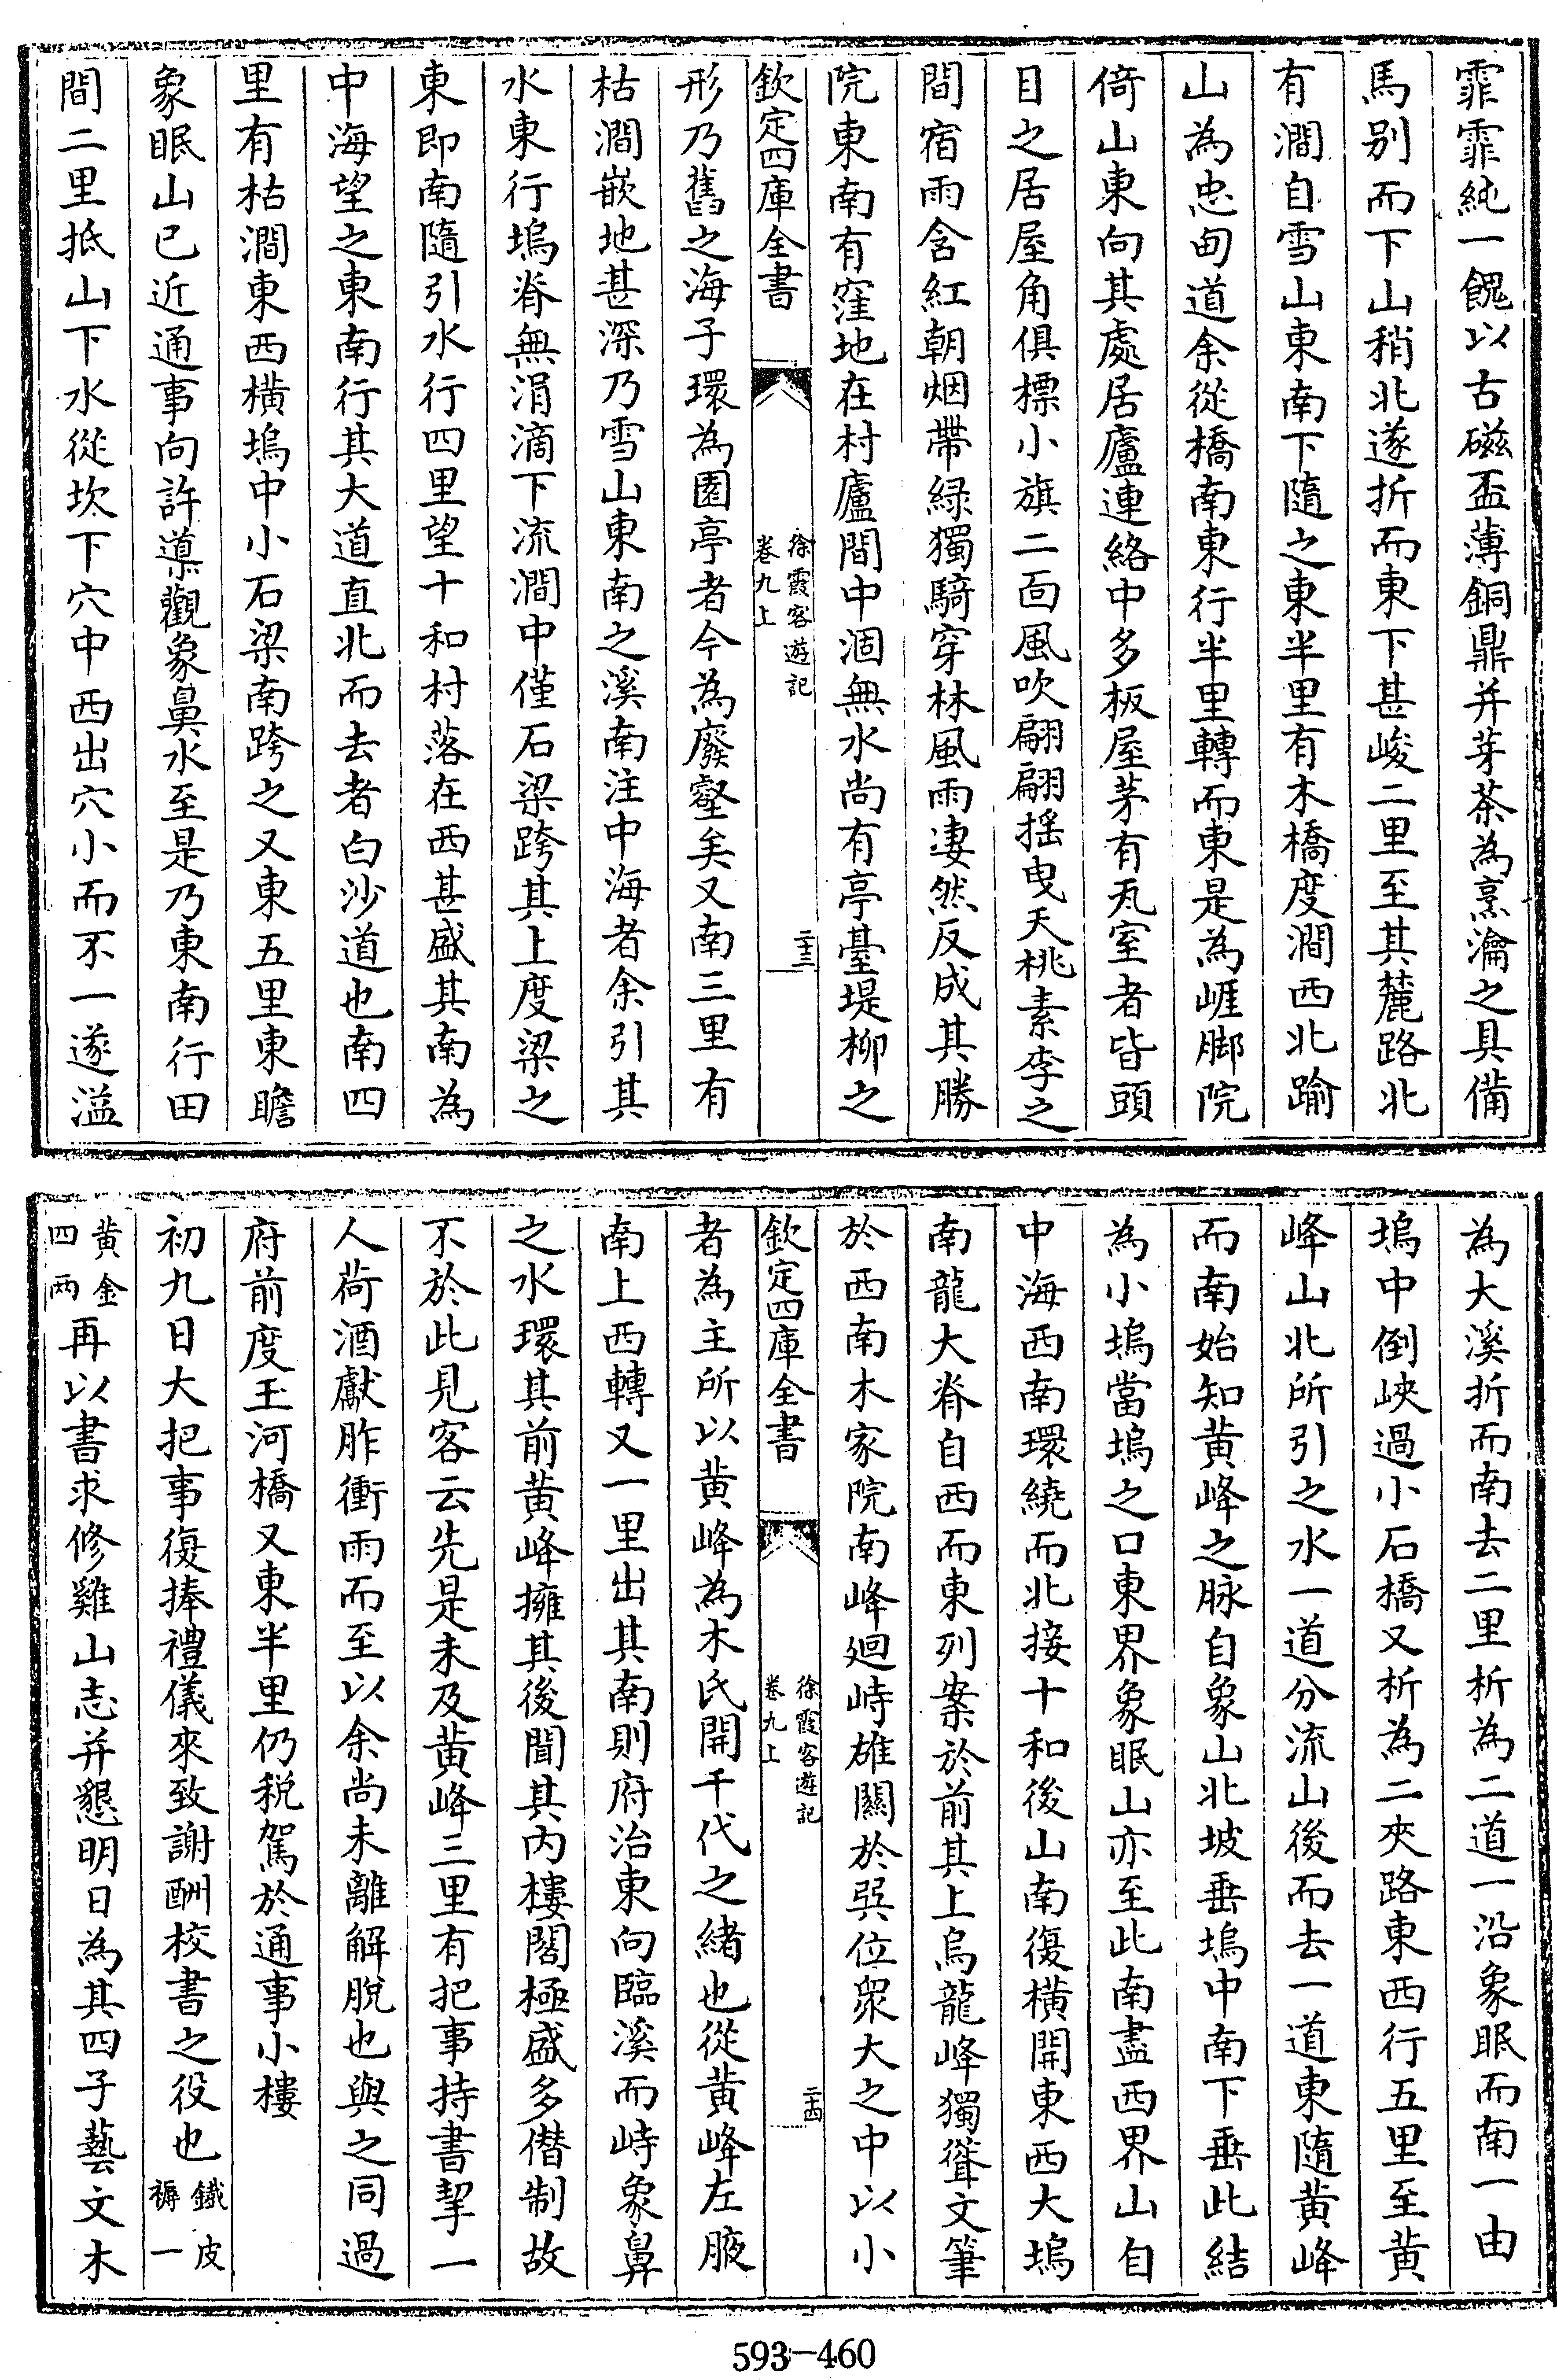 霏霏純一餽以古磁盃薄銅鼎并芽茶為烹瀹之具備
馬別而下山稍北遂折而東下甚峻二里至其麓路北
有澗自雪山東南下隨之東半里有木橋度澗西北踰
山為忠甸道余從橋南東行半里轉而東是為崖脚院
倚山東向其處居廬連絡中多板屋茅有瓦室者皆頭
目之居屋角俱標小旗二面風吹翩翩揺曳天桃素李之
間宿雨含紅朝烟帶緑獨騎穿林風雨凄然反成其勝
院東南有窪地在村廬間中涸無水尚有亭臺堤柳之
欽定四庫全書
徐霞客遊記
卷九上
二十三
形乃舊之海子環為園亭者今為廢壑矣又南三里有
枯澗嵌地甚深乃雪山東南之溪南注中海者余引其
水東行塢脊無涓滴下流澗中僅石梁跨其上度梁之
東即南隨引水行四里望十和村落在西甚盛其南為
中海望之東南行其大道直北而去者白沙道也南四
里有枯澗東西橫塢中小石梁南跨之又東五里東瞻
象眠山已近通事向許導觀象鼻水至是乃東南行田
間二里抵山下水從坎下穴中西出穴小而不一遂溢
為大溪折而南去二里析為二道一沿象眠而南一由
塢中倒峽過小石橋又析為二夾路東西行五里至黄
峰山北所引之水一道分流山後而去一道東隨黄峰
而南始知黄峰之脉自象山北坡垂塢中南下垂此結
為小塢當塢之口東界象眠山亦至此南盡西界山自
中海西南環繞而北接十和後山南復橫開東西大塢
南龍大脊自西而東列案於前其上烏龍峰獨聳文筆
於西南木家院南峰廻峙雄關於巽位衆大之中以小
欽定四庫全書
徐霞客遊記
卷九上
二十四
者為主所以黄峰為木氏開千代之緒也從黄峰左腋
南上西轉又一里出其南則府治東向臨溪而峙象鼻
之水環其前黄峰擁其後聞其内樓閣極盛多僭制故
不於此見客云先是未及黄峰三里有把事持書挈一
人荷酒獻胙衝雨而至以余尚未離解脫也與之同過
府前度玉河橋又東半里仍税駕於通事小樓
初九日大把事復捧禮儀來致謝酬校書之役也鐵皮褥一
黄金四兩再以書求修雞山志并懇明日為其四子藝文木
593-460